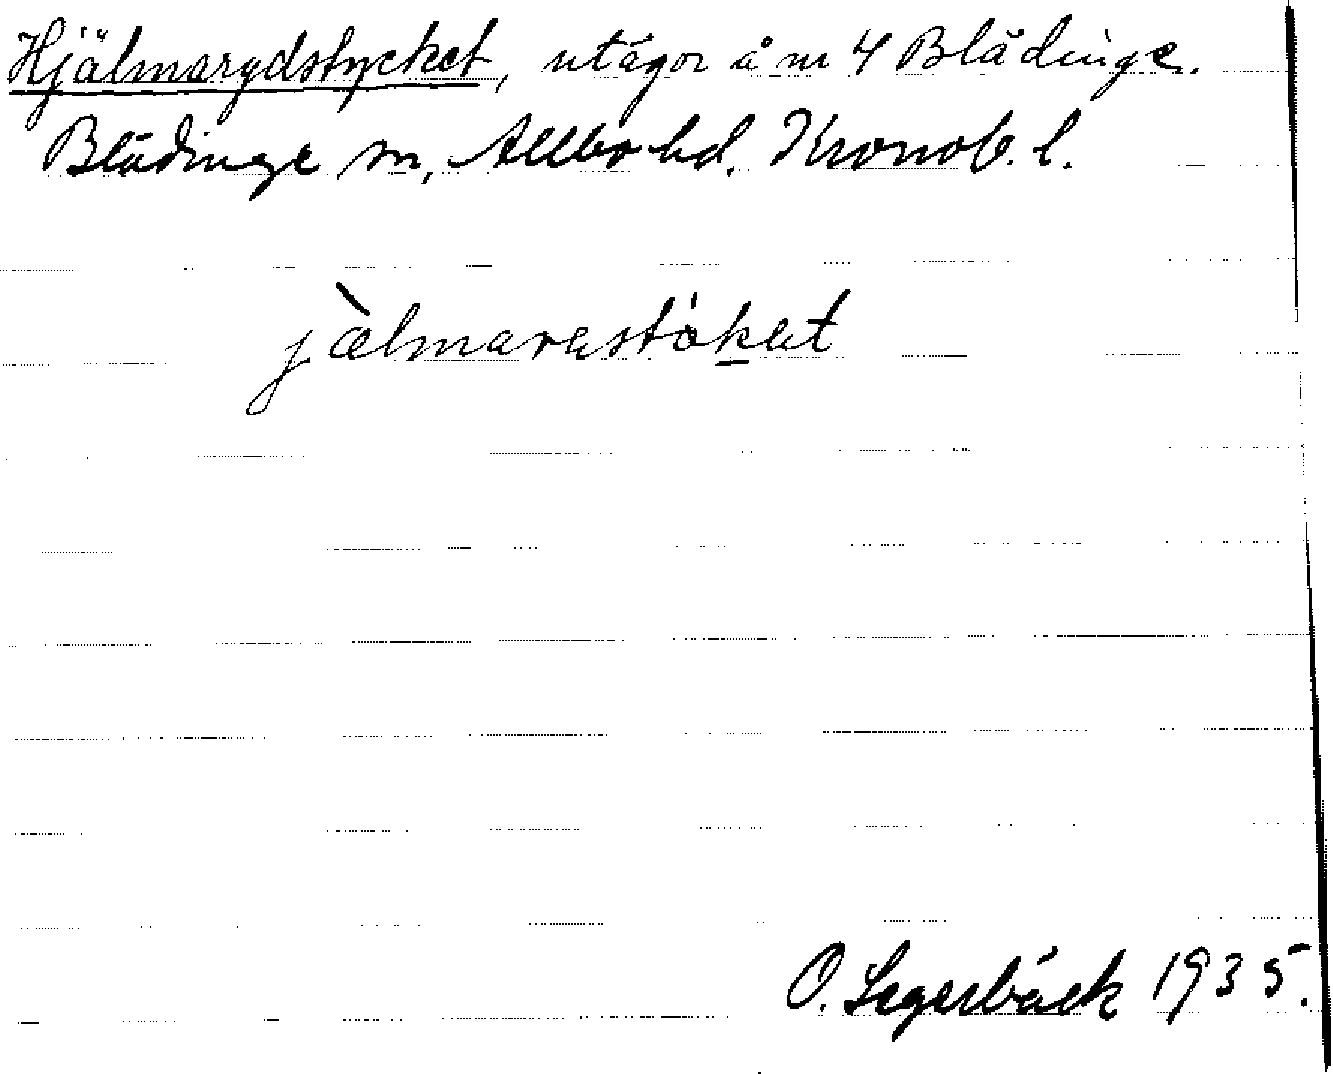 Hjälmarydstycket, utägor å nr 4 Blädinge.
Blädinge sn, Allbo hd. Kronob. l.
jàlmarastöket
O. Segerbäck 1935.